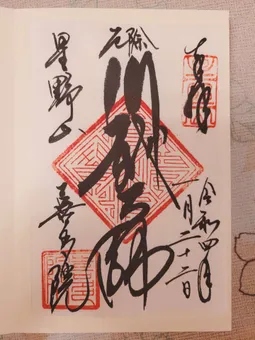 奉拝
令和四年
一月二十三日
厄除
川越大師
星野山
喜多院